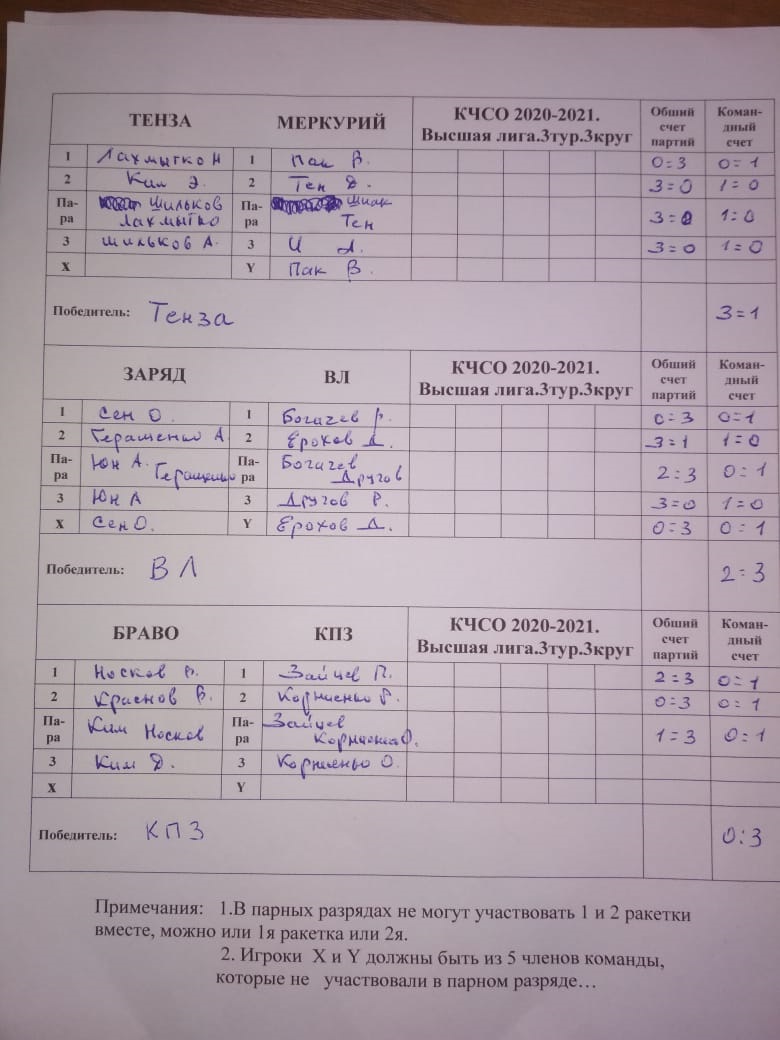 ТЕНЗА МЕРКУРИЙ КЧСО 2020-2021. Высшая лига.3тур.3круг Общий счет партий Коман-дный счет
1 Лахмытко Н 1 Пак В. 0:3 0=1
2 Ким Э. 2 Тен Д. 3=0 1=0
Па-ра Шильков Лахмытко Па-ра Тен 3=0 1:0
3 Шильков А. 3 3=0 1=0
X Y Пак В.
Победитель: Тенза 3=1
ЗАРЯД ВЛ КЧСО 2020-2021. Высшая лига.3тур.3круг Общий счет партий Коман-дный счет
1 Сен О. 1 Богачев Р. 0:3 0=1
2 Геращенко А 2 Ерохов Д. 3=1 1=0
Па-ра Юн А. Геращенко Па-ра Богачев Другов 2=3 0=1
3 Юн А 3 Другов Р. 3=0 1=0
X Сен О. Y Ерохов Д. 0:3 0=1
Победитель: ВЛ 2=3
БРАВО КПЗ КЧСО 2020-2021. Высшая лига.3тур.3круг Общий счет партий Коман-дный счет
1 Носков В. 1 Зайцев П. 2=3 0=1
2 Краснов В. 2 Корниенко Р. 0:3 0=1
Па-ра Ким Носков Па-ра Зайцев Корниенко О. 1=3 0=1
3 Ким Д. 3 Корниенко О.
X Y
Победитель: КПЗ 0:3
Примечания: 1.В парных разрядах не могут участвовать 1 и 2 ракетки
вместе, можно или 1я ракетка или 2я.
2. Игроки X и Y должны быть из 5 членов команды,
которые не участвовали в парном разряде…